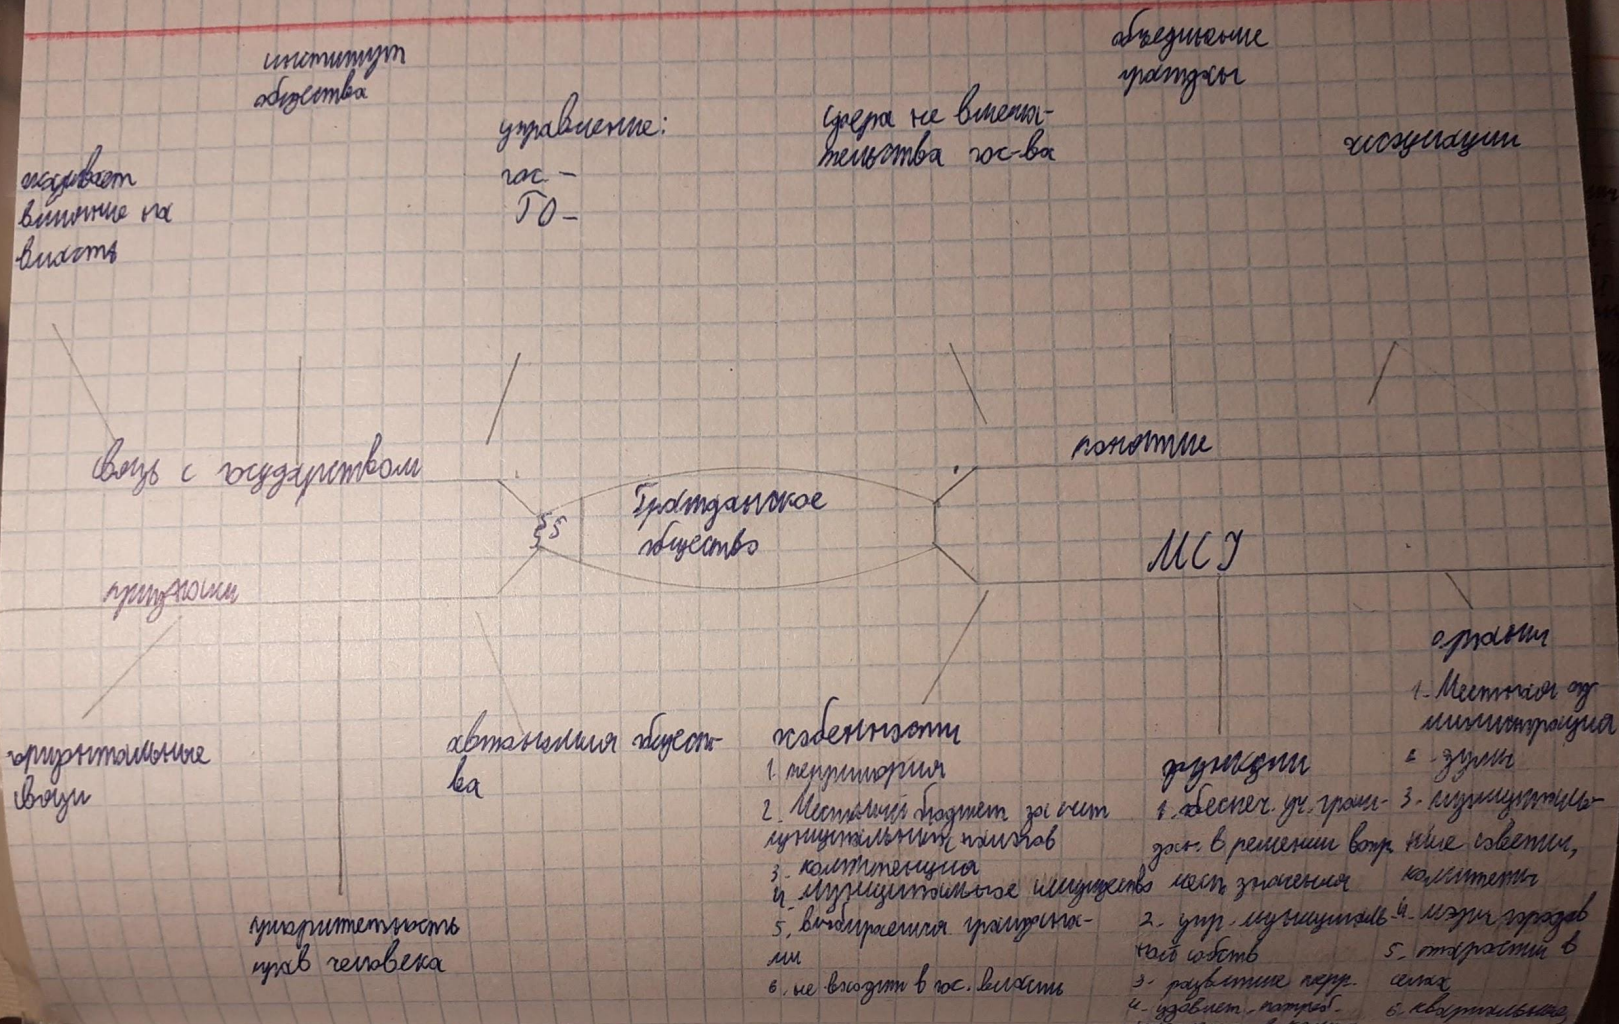 институт
общества
объединение
граждан
управление:
гос. –
ГО –
сфера не вмеша-
тельства гос-ва
ассоциации
оказывает
влияние на
власть
Связь с государством
понятие
Гражданское
общество
§§
МСУ
признаки
горизонтальные
связи
приоритетность
прав человека
автономия общест-
ва
особенности
1. территория
2. Местный бюджет за счет
муниципальных налогов
3. компетенция
4. муниципальное имущество
5. выбирается граждана-
ми
6. не входят в гос. власть
функции
1. обеспеч. уч. граж-
дан. в решении вопр.
мест. значения
2. упр. муниципаль-
ной собств
3. развитие терр.
4. удовлет. потреб.
органы
1. Местная ад-
министрация
2. думы
3. муниципаль-
ные советы,
комитеты
4. мэры городов
5. старосты в
селах
6. квартальные,